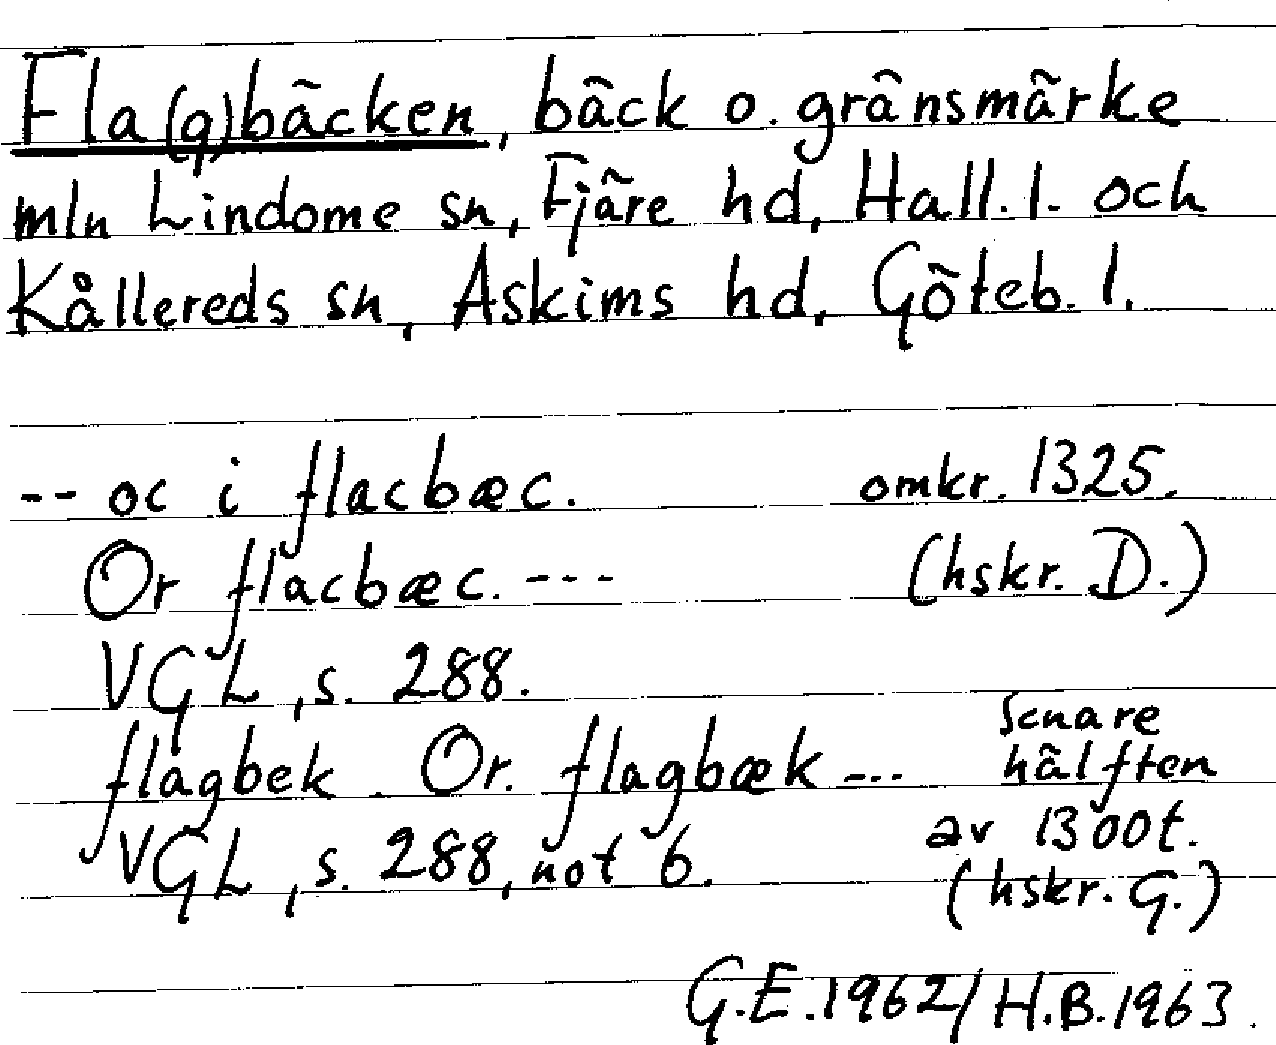 Fla(g)bäcken, bäck o. gränsmärke
mln Lindome sn, Fjäre hd, Hall. l. och
Kållereds sn, Askims hd, Göteb. l.
-- oc i flacbæc. omkr. 1325.
Or flacbæc. --- (hskr. D.)
VGL, s. 288.
flagbek. Or. flagbæk --- Senare hälften
VGL, s. 288, not 6. av 1300t.
(hskr. G.)
G.E. 1962/H.B. 1963.